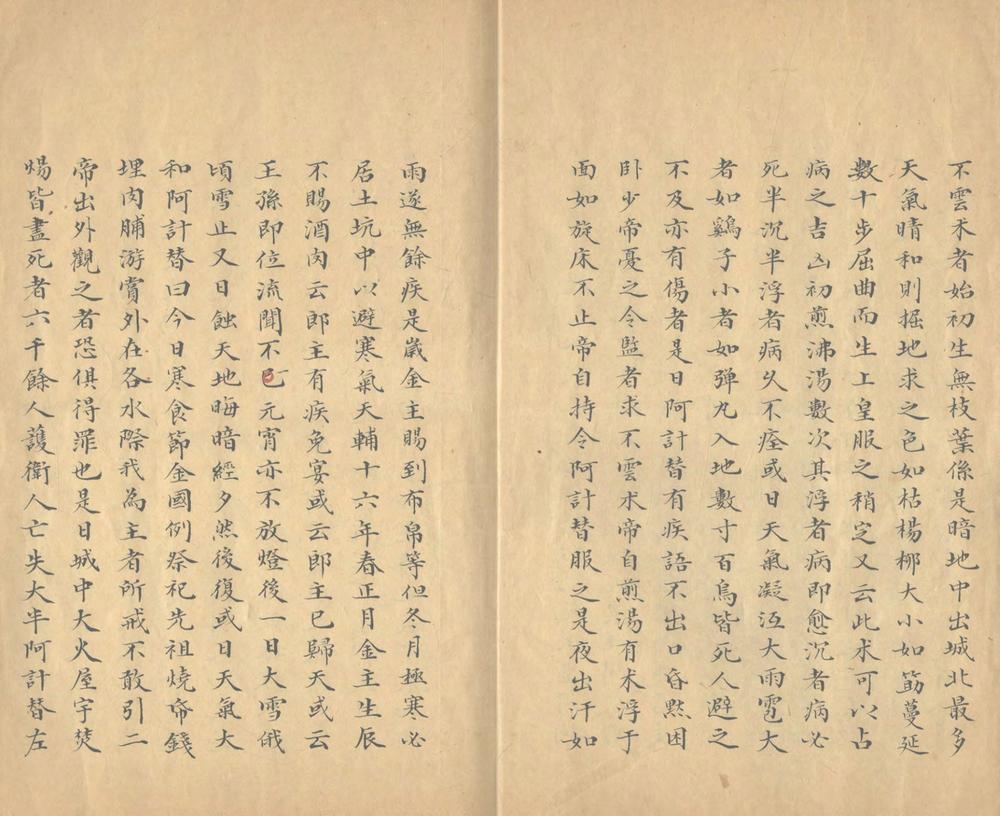 不雲禾者始初生無枝葉係是暗地中出城北最多
天氣晴和則掘地求之色如枯楊柳大小如筯蔓延
數十步屈曲而生上皇服之稍定又云此求可以占
病之吉凶初煎沸湯數次其浮者病即愈沉者病必
死半沉半浮者病久不痊或日天氣凝沍大雨雹大
者如鷄子小者如弹丸入地數寸百鳥皆死人避之
不及亦有傷者是日阿計替有疾語不出口昏黙困
卧少帝憂之令監者求不雲术帝自煎湯有术浮于
面如旋床不止帝自持令阿計替服之是夜出汗如
雨遂無餘疾是嵗金主賜到布帛等但冬月極寒必
居土坑中以避寒氣天輔十六年春正月金主生辰
不賜酒肉云郎主有疾免宴或云郎主已歸天或云
王孫即位流聞不已元宵亦不放燈後一日大雪俄
頃雪止又日蝕天地晦暗經夕然後復或日天氣大
和阿計替曰今日寒食節金國例祭祀先祖燒帋錢
埋肉脯游賞外在各水際我為主者所戒不敢引二
帝出外觀之者恐俱得罪也是日城中大火屋宇焚
煬皆盡死者六千餘人護衛人亡失大半阿計替左